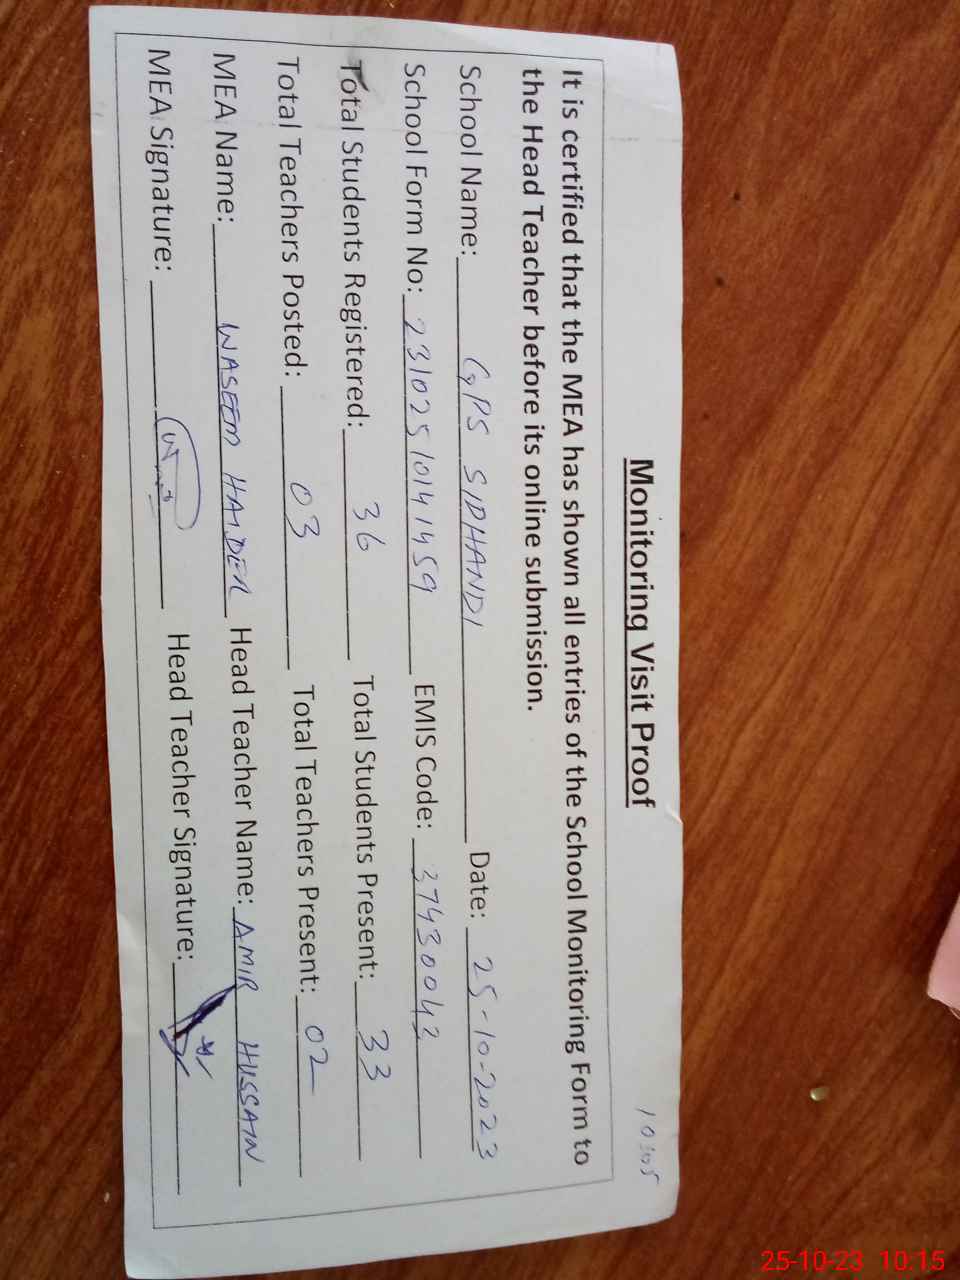 10:05
Monitoring Visit Proof
It is certified that the MEA has shown all entries of the School Monitoring Form to
the Head Teacher before its online submission.
School Name: GPS SIDHANDI Date: 25-10-2023
School Form No: 23102510141459 EMIS Code: 37430042
Total Students Registered: 36 Total Students Present: 33
Total Teachers Posted: 03 Total Teachers Present: 02
MEA Name: WASEEM HAIDER Head Teacher Name: AMIR HUSSAIN
MEA Signature: Head Teacher Signature:
25-10-23 10:15